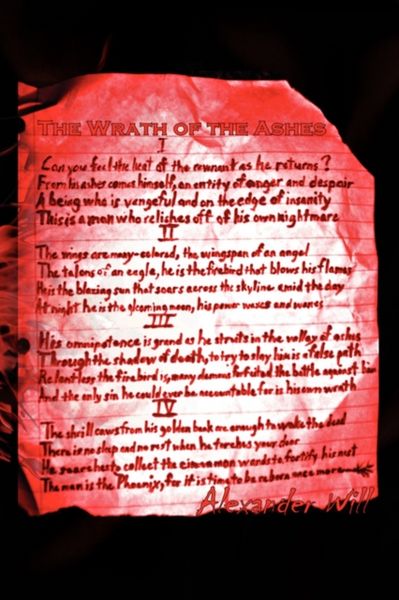 THE WRATH OF THE ASHES
I
Can you feel the heat of the remnant as he returns?
From his ashes comes himself, an entity of anger and despair
A being who is vengeful and on the edge of insanity
This is a man who relishes off of his own nightmare
II
The wings are many-colored, the wingspan of an angel
The talons of an eagle, he is the firebird that blows his flames
He is the blazing sun that soars across the skyline amid the day
At night he is the gleaming moon, his power waxes and wanes
III
His omnipotence is grand as he struts in the valley of ashes
Through the shadow of death, to try to slay him is a false path
Relentless the firebird is, many demons forfeited the battle against him
And the only sin he could ever be accountable for is his own wrath
IV
The shrill caws from his golden beak are enough to wake the dead
There is no sleep and no rest when he torches your door
He soars to collect the cinnamon wands to fortify his nest
The man is the Phoenix, for it is time to be reborn once more
Alexander Will